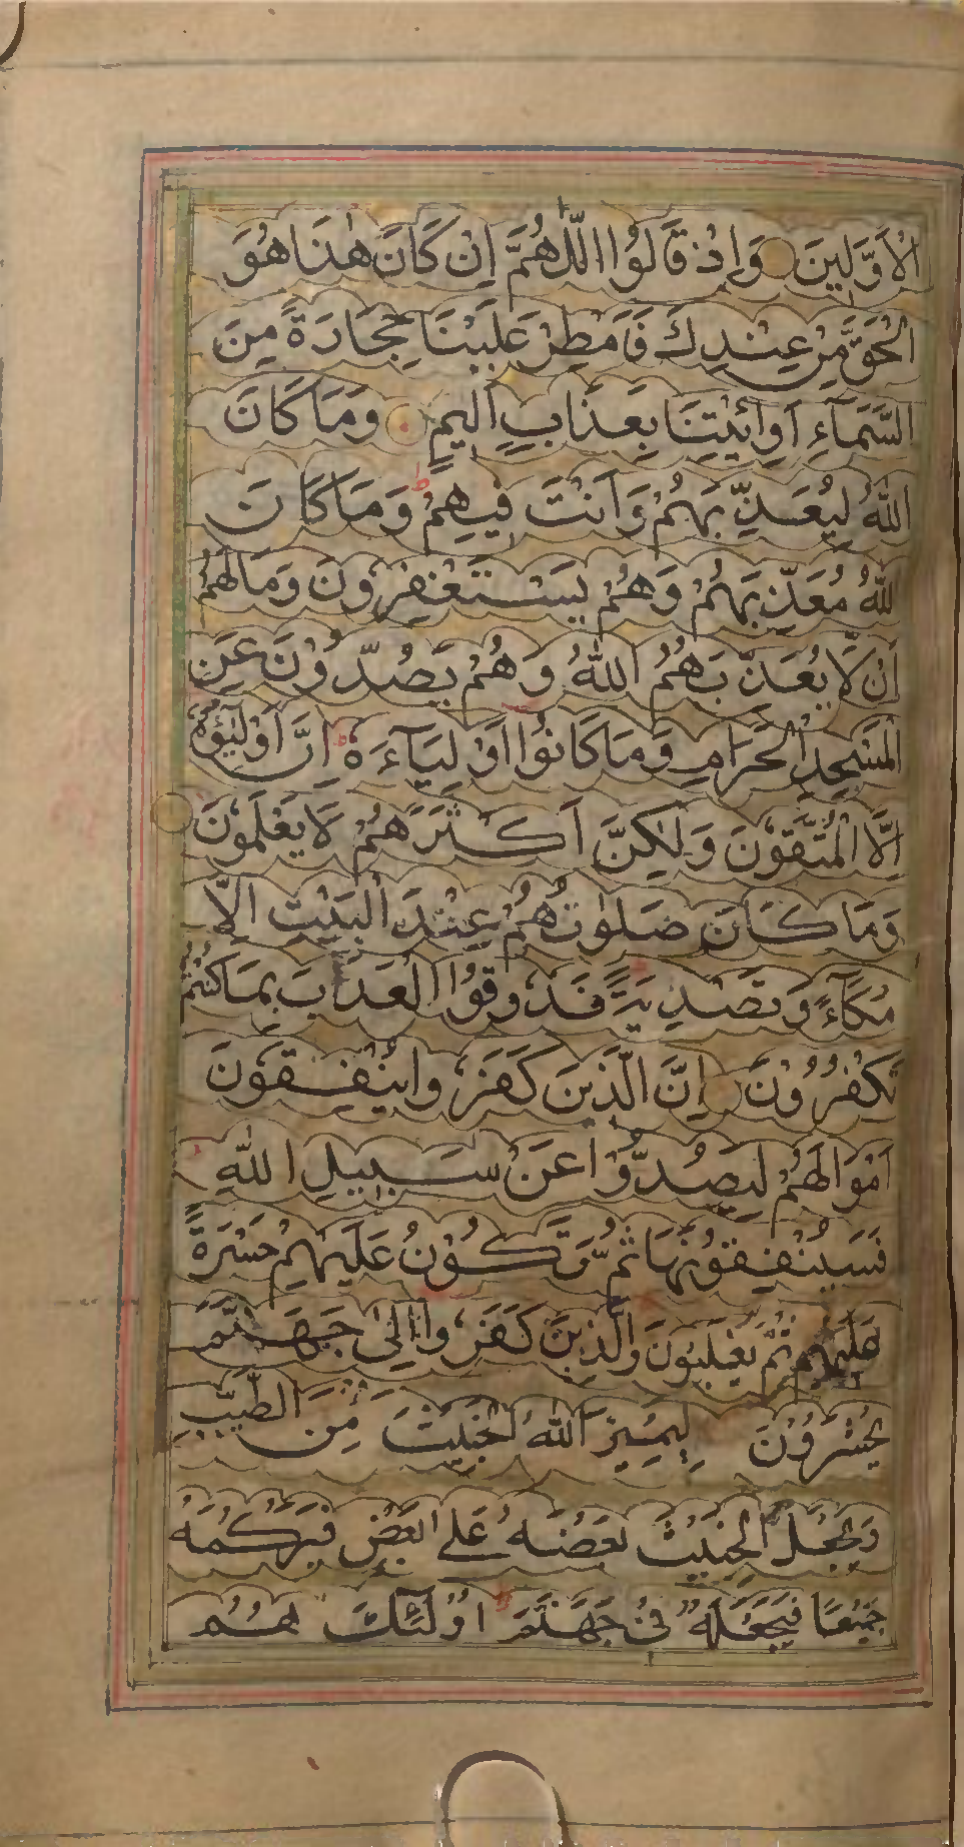 الْاَوَّلِينَ وَاِذْ قَالُوا اللّٰهُمَّ اِنْ كَانَ هٰذَا هُوَ
الْحَقَّ مِنْ عِنْدِكَ فَاَمْطِرْ عَلَيْنَا حِجَارَةً مِنَ
السَّمَآءِ اَوِائْتِنَا بِعَذَابٍ اَلِيمٍ وَمَا كَانَ
اللّٰهُ لِيُعَذِّبَهُمْ وَاَنْتَ فِيهِمْ ط وَمَا كَانَ
اللّٰهُ مُعَذِّبَهُمْ وَهُمْ يَسْتَغْفِرُونَ وَمَا لَهُمْ
اَنْ لَّا يُعَذِّبَهُمُ اللّٰهُ وَهُمْ يَصُدُّوْنَ عَنِ
الْمَسْجِدِ الْحَرَامِ وَمَا كَانُوْا اَوْلِيَآءَهُ ط اِنْ اَوْلِيَٓؤُهُ
اِلَّا الْمُتَّقُوْنَ وَلٰكِنَّ اَكْثَرَهُمْ لَا يَعْلَمُوْنَ
وَمَا كَانَ صَلٰوتُهُمْ عِنْدَ الْبَيْتِ اِلَّا
مُكَآءً وَتَصْدِيَةً فَذُوقُوا الْعَذَابَ بِمَا كُنْتُمْ
تَكْفُرُوْنَ اِنَّ الَّذِينَ كَفَرُوا يُنْفِقُوْنَ
اَمْوَالَهُمْ لِيَصُدُّوْا عَنْ سَبِيلِ اللّٰهِ
فَسَيُنْفِقُوْنَهَا ثُمَّ تَكُوْنُ عَلَيْهِمْ حَسْرَةً
عَلَيْهِمْ ثُمَّ يُغْلَبُوْنَ وَالَّذِينَ كَفَرُوا اِلٰى جَهَنَّمَ
يُحْشَرُوْنَ لِيَمِيْزَ اللّٰهُ الْخَبِيثَ مِنَ الطَّيِّبِ
وَيَجْعَلَ الْخَبِيثَ بَعْضَهُ عَلٰى بَعْضٍ فَيَرْكُمَهُ
جَمِيعًا فَيَجْعَلَهُ فِى جَهَنَّمَ ط اُوْلٰٓئِكَ هُمُ